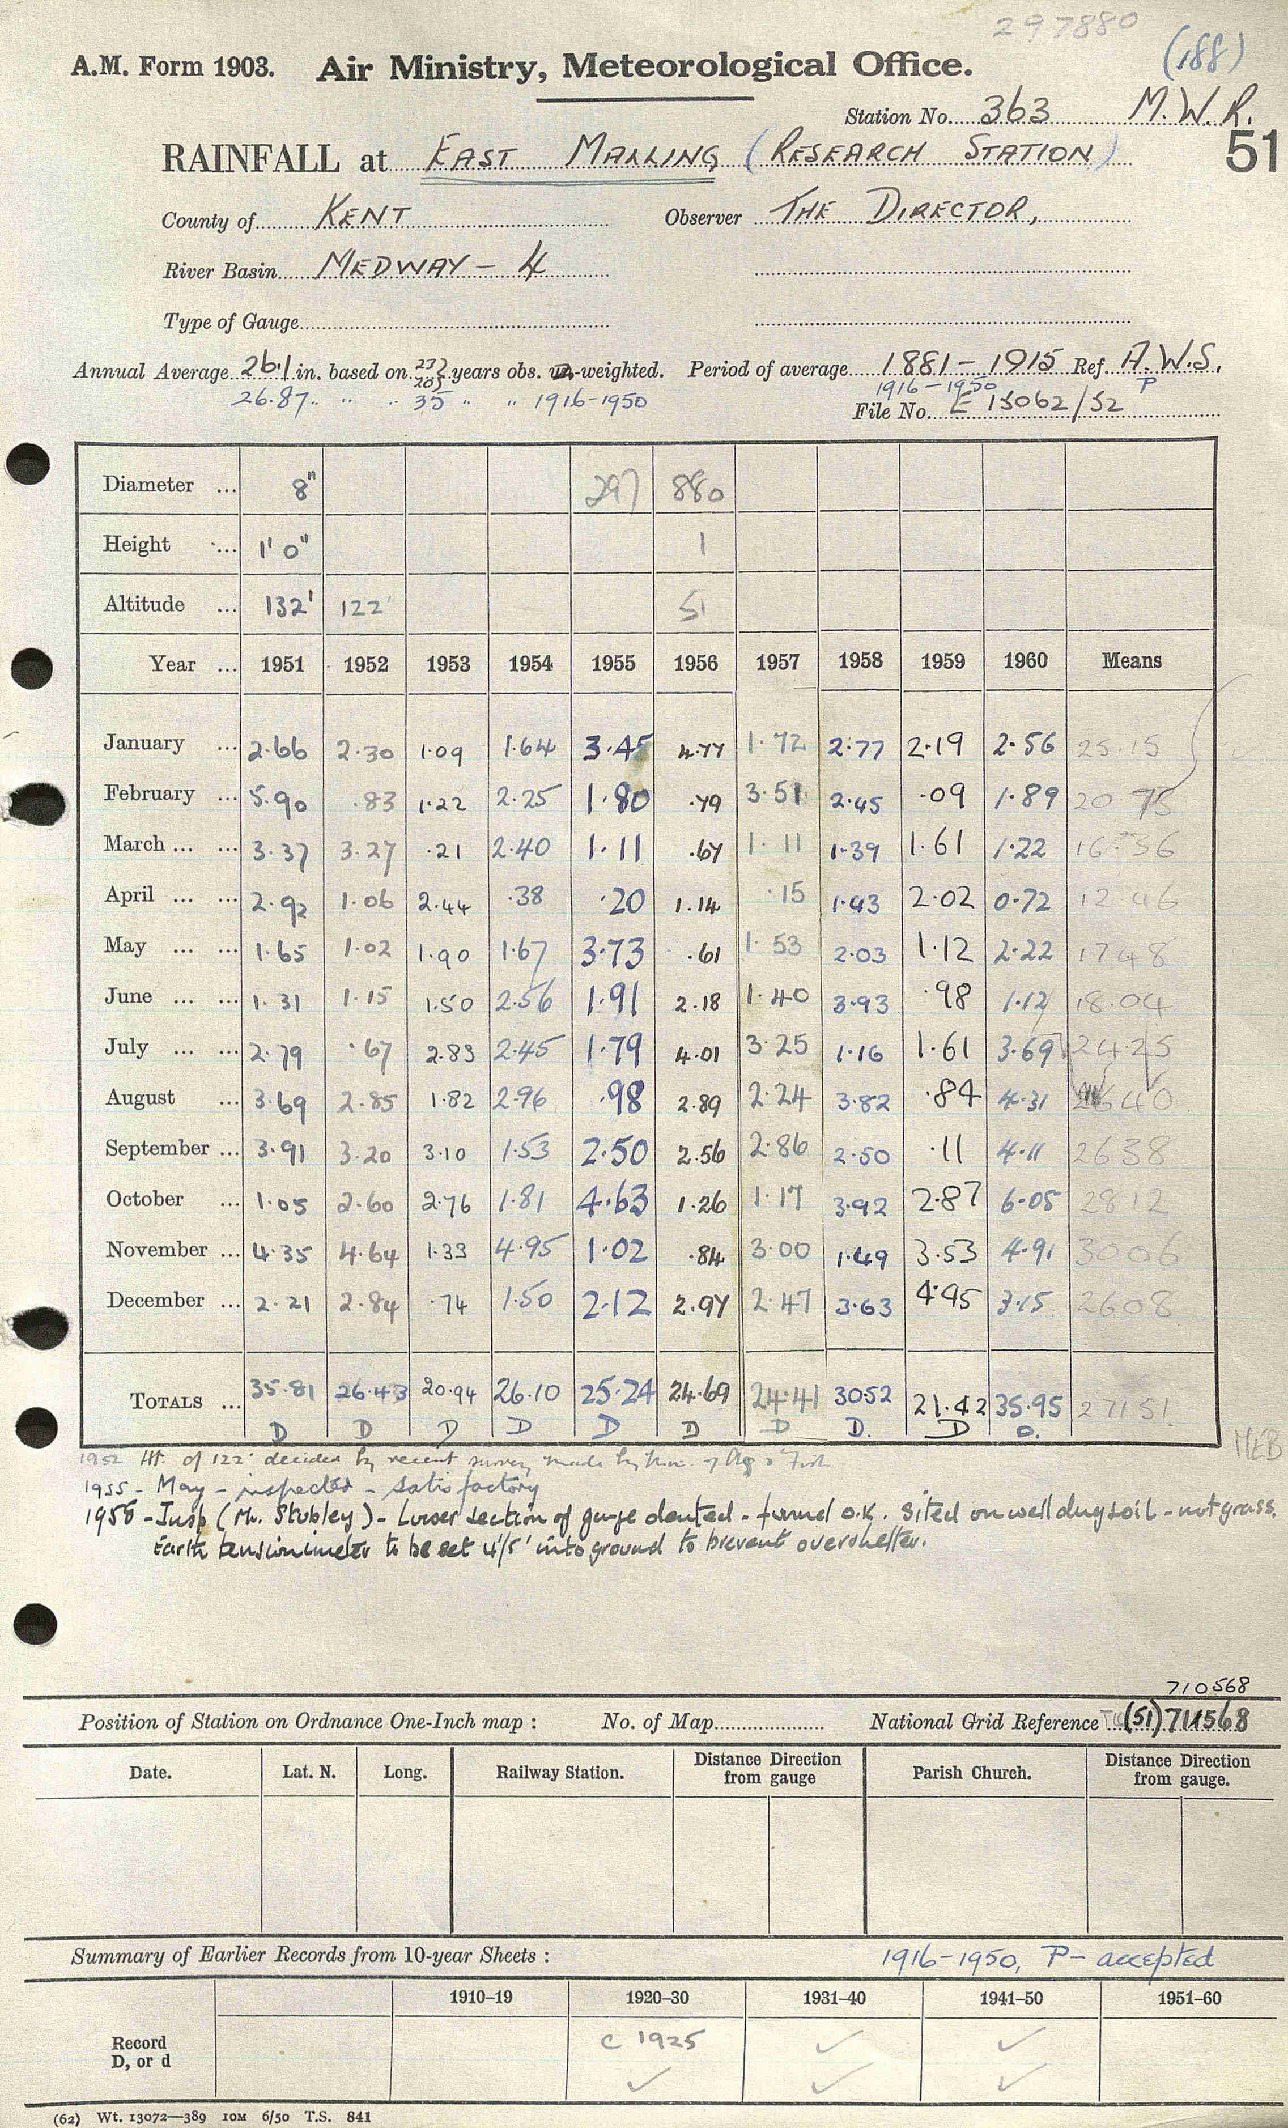 297880
(188)
A.M. Form 1903. Air Ministry, Meteorological Office.
Station No. 363 M.W.R.
51
RAINFALL at EAST MALLING (RESEARCH STATION)
County of KENT Observer THE DIRECTOR,
River Basin MEDWAY - 4
Type of Gauge
Annual Average 26.1 in. based on years obs. -weighted. Period of average 1881-1915 Ref. A.W.S.
26.87 " " " 35 " " 1916-1950 1916-1950 P
File No. E 15062/52
Diameter ... 8" 297 880
Height ... 1' 0" 1
Altitude ... 132' 122' 51
Year ... 1951 1952 1953 1954 1955 1956 1957 1958 1959 1960 Means
January ... 2.66 2.30 1.09 1.64 3.45 4.77 1.72 2.77 2.19 2.56 25.15
February ... 5.90 .83 1.22 2.25 1.80 .79 3.51 2.45 .09 1.89 20 75
March ... ... 3.37 3.27 .21 2.40 1.11 .67 1.11 1.39 1.61 1.22 16.36
April ... ... 2.92 1.06 2.44 .38 .20 1.14 .15 1.43 2.02 0.72 12.46
May ... ... 1.65 1.02 1.90 1.67 3.73 .61 1.53 2.03 1.12 2.22 17 48
June ... ... 1.31 1.15 1.50 2.56 1.91 2.18 1.40 3.93 .98 1.12 18 04
July ... ... 2.79 .67 2.83 2.45 1.79 4.01 3.25 1.16 1.61 3.69 24 25
August ... 3.69 2.85 1.82 2.96 .98 2.89 2.24 3.82 .84 4.31 26 40
September ... 3.91 3.20 3.10 1.53 2.50 2.56 2.86 2.50 .11 4.11 26 38
October ... 1.05 2.60 2.76 1.81 4.63 1.26 1.17 3.92 2.87 6.05 28 12
November ... 4.35 4.64 1.33 4.95 1.02 .84 3.00 1.49 3.53 4.91 30 06
December ... 2.21 2.84 .74 1.50 2.12 2.97 2.47 3.63 4.95 3.15 26 08
TOTALS ... 35.81 26.43 20.94 26.10 25.24 24.69 24.41 30.52 21.42 35.95 271 51
D D D D D D D D. D D.
MEB
1952 Ht. of 122' decided by recent survey made by Min. of Ag & Fish
1955 - May - inspected - satisfactory
1956 - Insp (Mr. Stubley) - Lower section of gauge dented - funnel O.K. Sited on well dug soil - not grass.
Earth tensionimeter to be set 4/5' into ground to prevent overshelter.
710568
Position of Station on Ordnance One-Inch map : No. of Map National Grid Reference (51) 711568
Date. Lat. N. Long. Railway Station. Distance from gauge Direction Parish Church. Distance from gauge. Direction
Summary of Earlier Records from 10-year Sheets : 1916-1950, P- accepted
1910-19 1920-30 1931-40 1941-50 1951-60
Record c 1925 ✓ ✓
D, or d ✓ ✓ ✓
(62) Wt. 13072—389 10M 6/50 T.S. 841